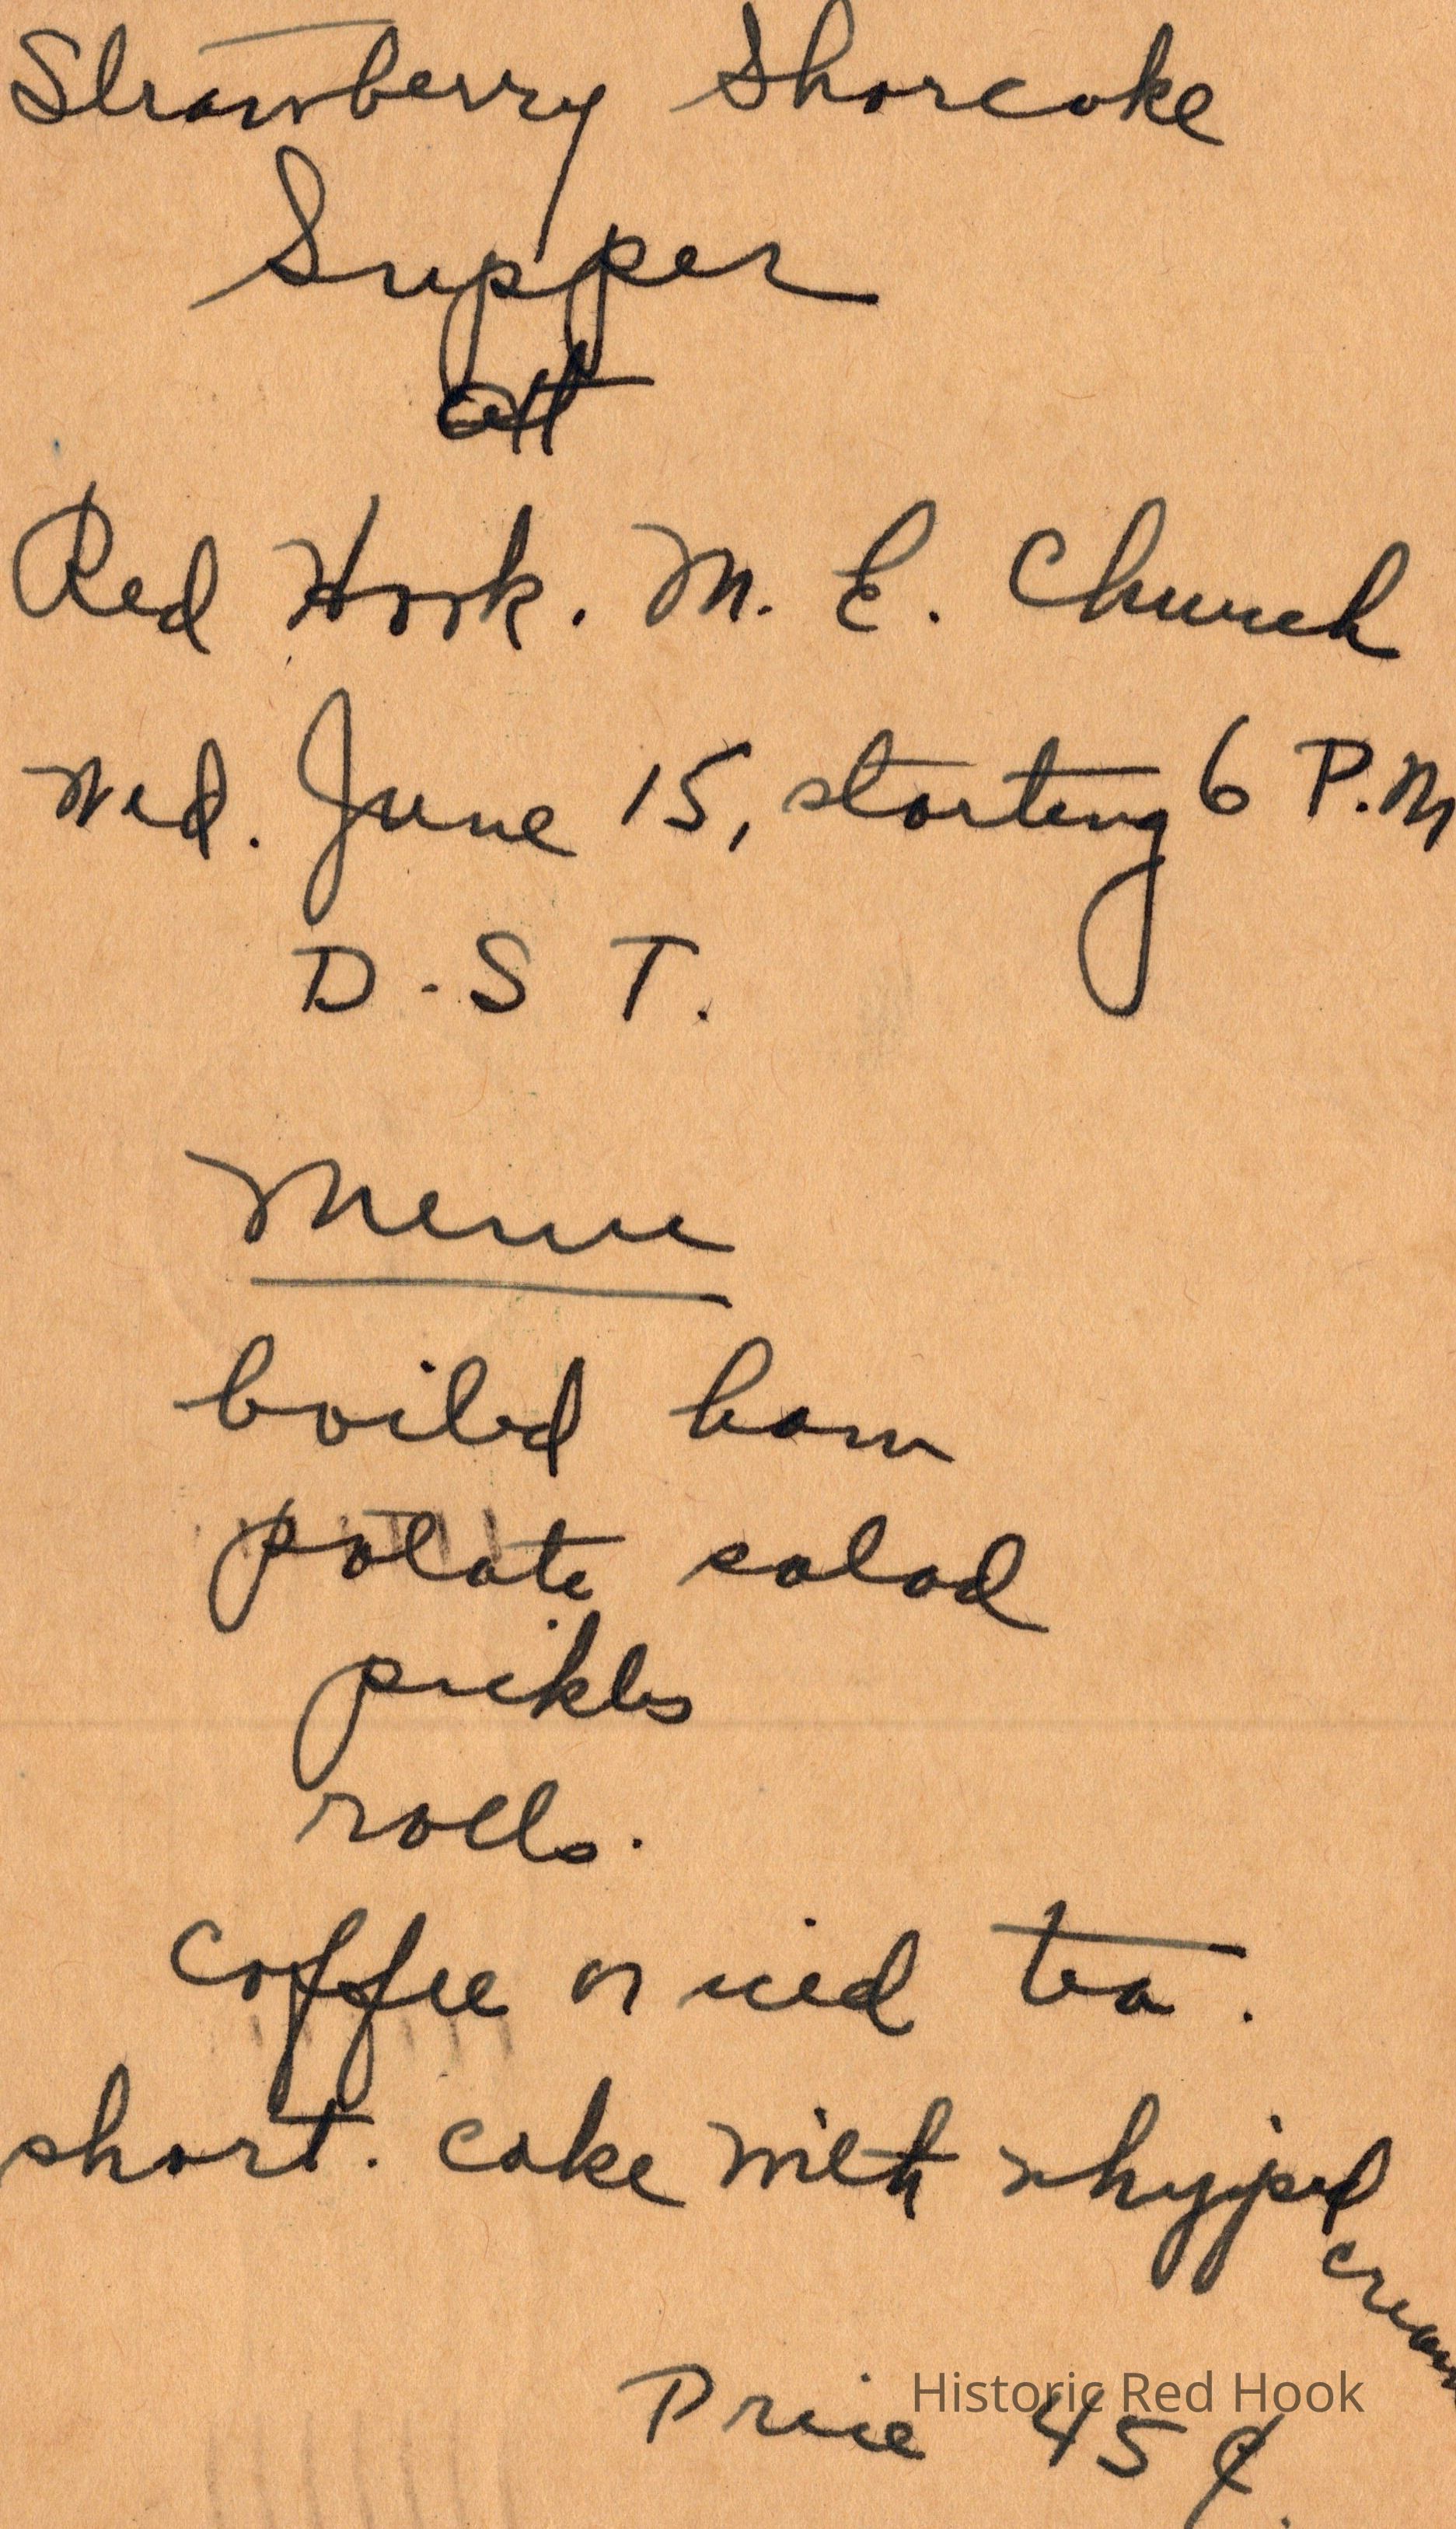 Strawberry Shorcake
Supper
at
Red Hook. M. E. Church
Wed. June 15, starting 6 P.M
D. S T.
Menu
boiled ham
potato salad
pickles
rolls.
coffee or iced tea.
short. cake with whypped
cream
Price 45¢
Historic Red Hook